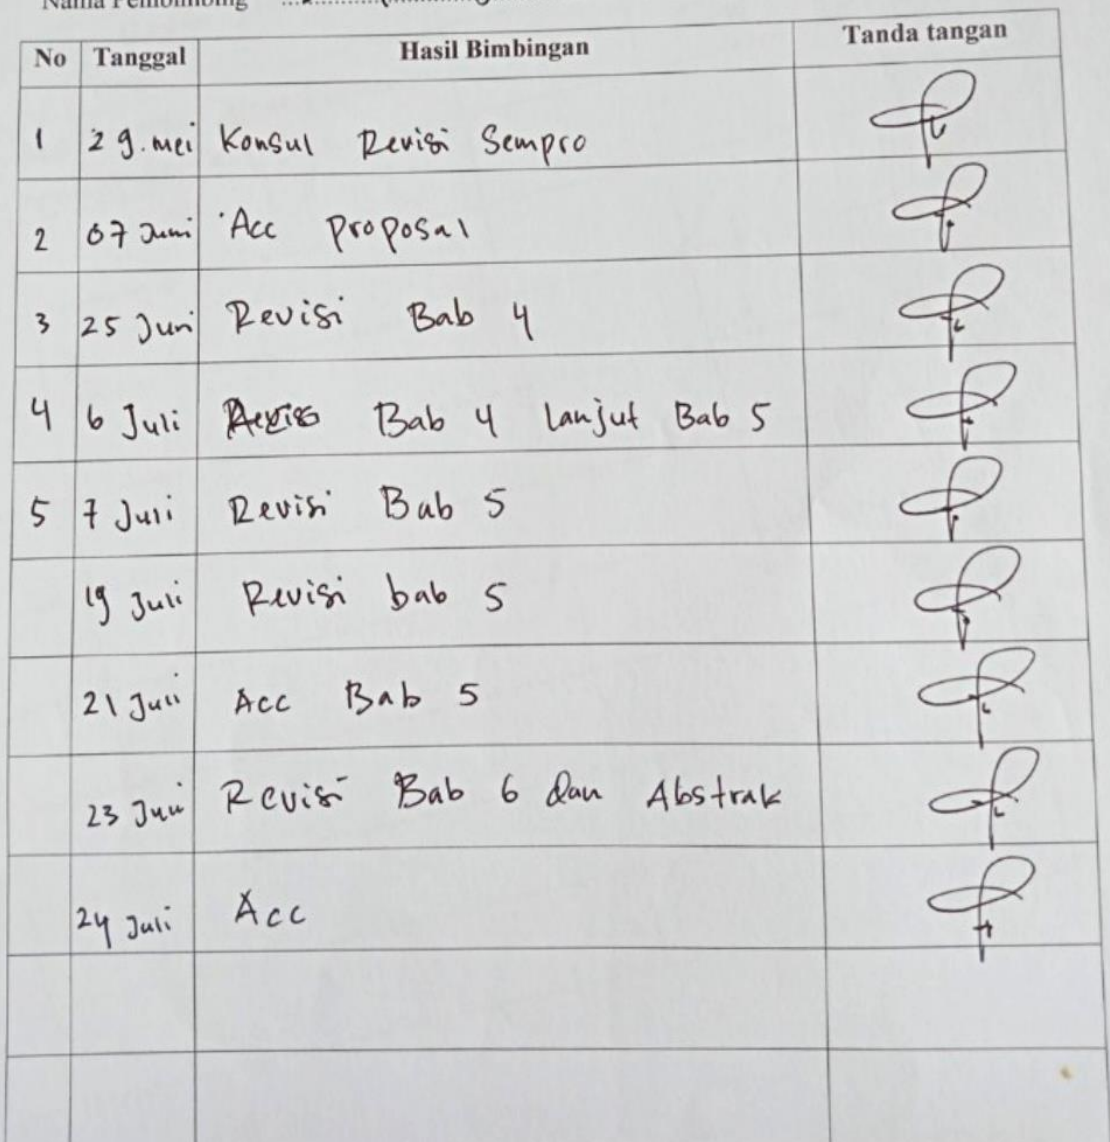 Nama Pembimbing
No Tanggal Hasil Bimbingan Tanda tangan
1 29. mei Konsul Revisi Sempro
2 07 Juni Acc Proposal
3 25 Juni Revisi Bab 4
4 6 Juli Bab 4 Lanjut Bab 5
5 7 Juli Revisi Bab 5
19 Juli Revisi bab 5
21 Juli Acc Bab 5
23 Juli Revisi Bab 6 dan Abstrak
24 Juli Acc